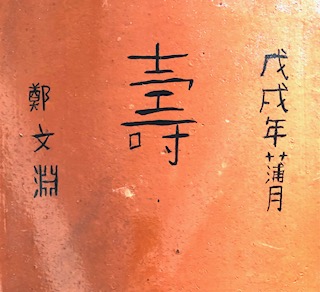 戊戌年蒲月
壽
鄭文淵